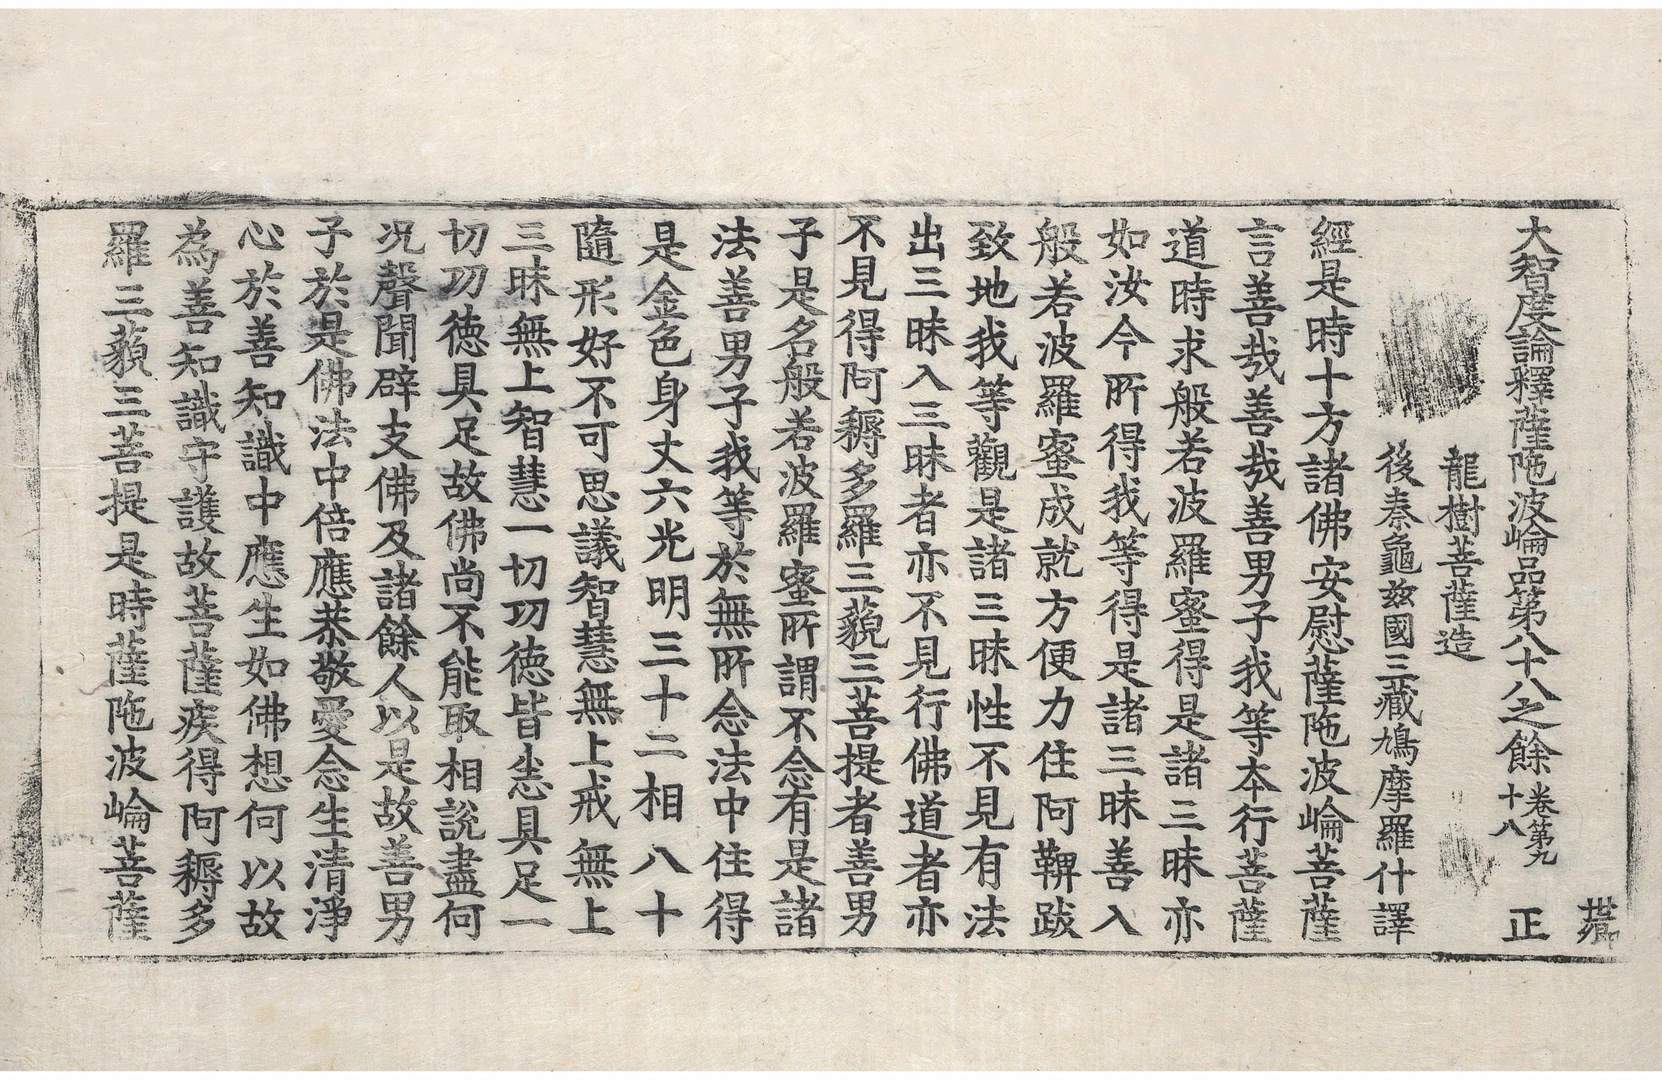 大智度論釋薩陁波崘品第八十八之餘 卷第九十八 正
龍樹菩薩造
後秦龜茲國三藏鳩摩羅什譯
經是時十方諸佛安慰薩陁波崘菩薩
言善哉善哉善男子我等本行菩薩
道時求般若波羅蜜得是諸三昧亦
如汝今所得我等得是諸三昧善入
般若波羅蜜成就方便力住阿鞞跋
致地我等觀是諸三昧性不見有法
出三昧入三昧者亦不見行佛道者亦
不見得阿耨多羅三藐三菩提者善男
子是名般若波羅蜜所謂不念有是諸
法善男子我等於無所念法中住得
是金色身丈六光明三十二相八十
隨形好不可思議智慧無上戒無上
三昧無上智慧一切功德皆悉具足一
切功德具足故佛尚不能取相說盡何
況聲聞辟支佛及諸餘人以是故善男
子於是佛法中倍應恭敬愛念生清淨
心於善知識中應生如佛想何以故
為善知識守護故菩薩疾得阿耨多
羅三藐三菩提是時薩陁波崘菩薩